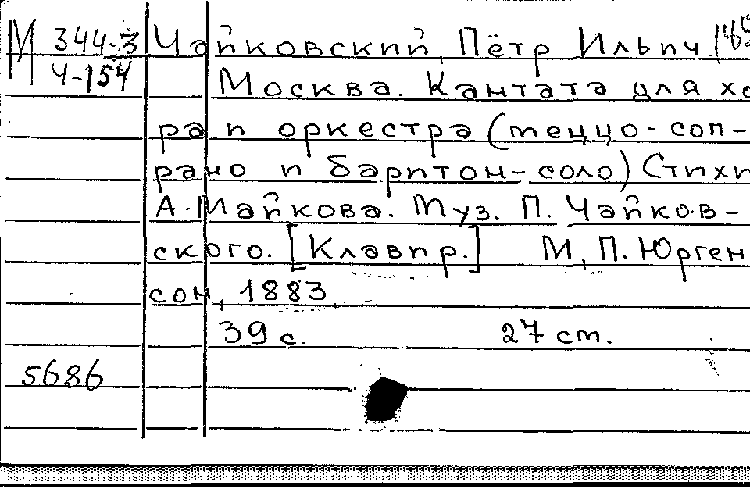 М 344-3 Чайковский, Пётр Ильич
Ч-154 Москва. Кантата для хо
ра и оркестра (меццо-соп-
рано и баритон-соло) Стихи
А. Майкова. Муз. П. Чайков-
ского. [Клавир.] М., П. Юрген
сон, 1883.
39 с. 27 см.
5686